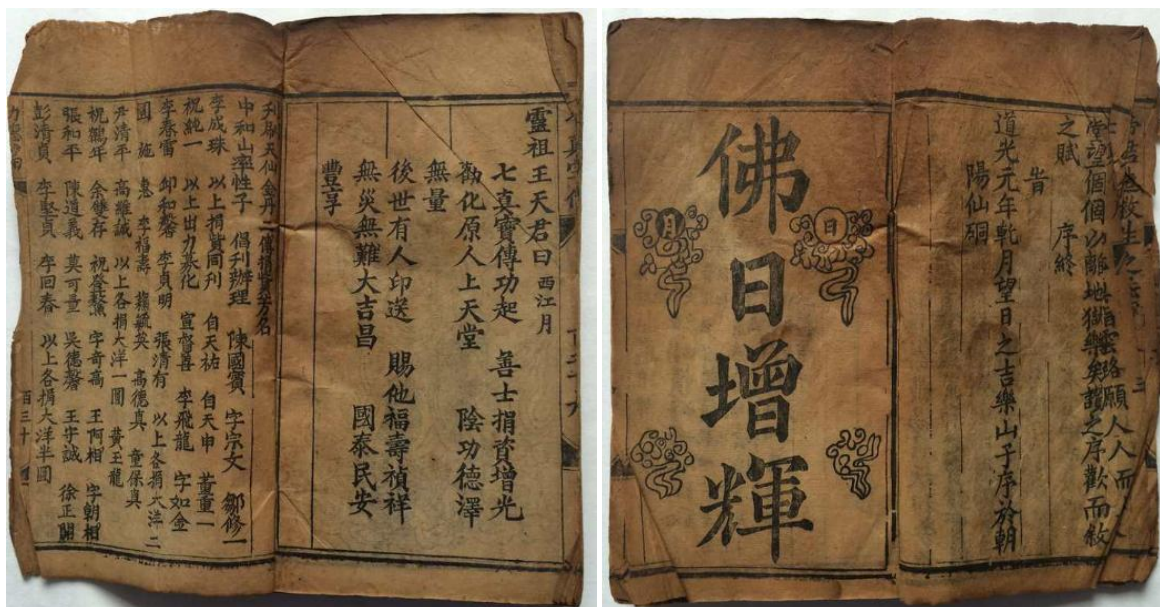 靈祖王天君曰西江月
七真寶傳功起 善士捐資增光
勸化原人上天堂 陰功德澤
無量
後世有人印送 賜他福壽禎祥
無災無難大吉昌 國泰民安
豐享
天仙金丹一傳捐資芳名
中和山率性子 倡刊辦理 陳國賓 字宗文 鄒修一
李成珠 以上捐資同刊 自天祐 自天申 黃重一
祝純一 以上出力募化 宣督善 李飛龍 字如金
李春雷 邱和馨 李貞明 張清有 以上各捐大洋二
圓 施 李福壽 龍毓英 高德真 童保真
尹清平 高維誠 以上各捐大洋一圓 黃玉龍
祝鶴年 余雙存 祝登鰲 字奇高 王阿相 字朝相
張和平 陳道義 莫可量 吳德馨 王守誠 徐正開
彭清貞 李堅貞 李回春 以上各捐大洋半圓
百三十
三
望個個以離地獄樂矣謂之序歡而敘
之賦 序終
旹
道光元年乾月望日之吉樂山子序於朝
陽仙硐
佛日增輝
日
月